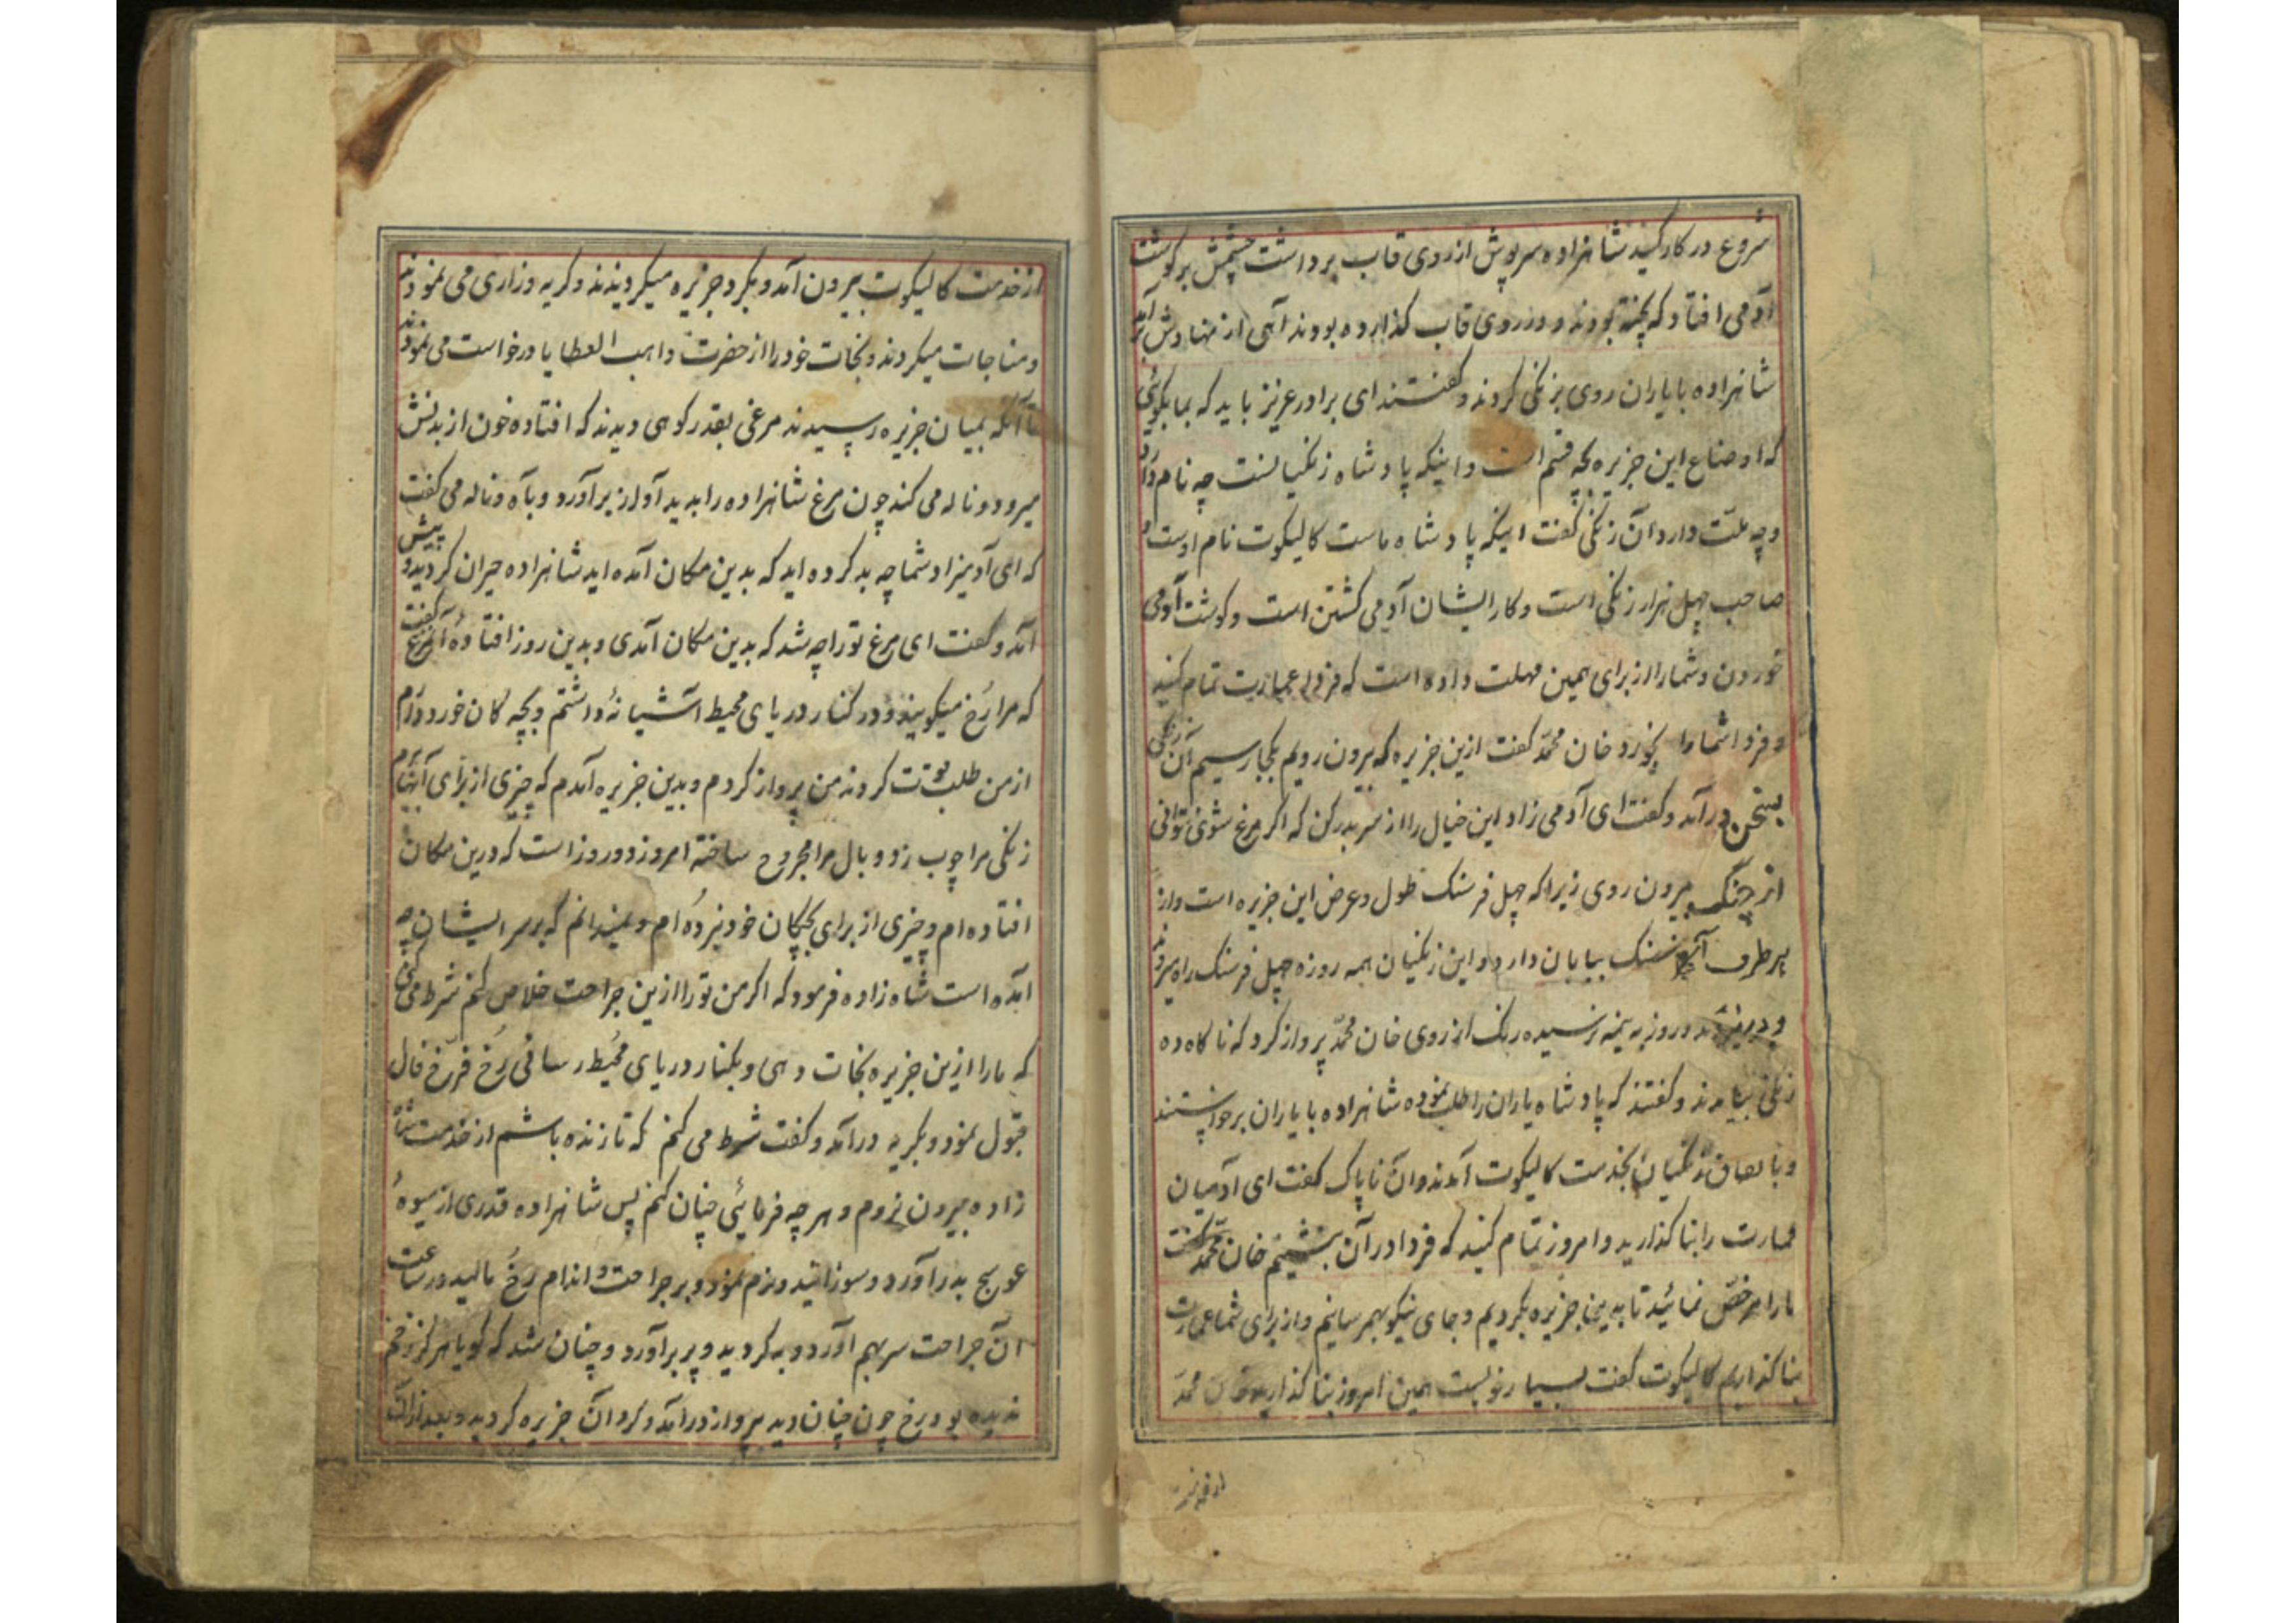 شروع در کار کنید شاهزاده سرپوش از روی قاب برداشت چشمش بر گوشت
آدمی افتاد که پخته بودند و در روی قاب گذارده بودند آهی از نهادش برآمد
شاهزاده با یاران روی بزنگی کردند و گفتند ای برادر عزیز باید که بما بگوئی
که اوضاع این جزیره بچه قسم است و اینکه پادشاه زنگیانست چه نام دارد
و چه ملت دارد آن زنگی گفت اینکه پادشاه ماست کالیکوت نام اوست و
صاحب چهل هزار زنگی است و کار ایشان آدمی کشتن است و گوشت آدمی
خوردن و شما را از برای همین مهلت داده است که فردا عمارت تمام کنید
و فردا شما را بخورد خان محمد گفت ازین جزیره که بیرون رویم بکجا رسیم آن زنگی
بسخن درآمد و گفت ای آدمی زاد این خیال را از سر بدر کن که اگر مرغ شوی نتوانی
از چنگ بیرون روی زیرا که چهل فرسنک طول و عرض این جزیره است و از
هر طرف فرسنک بیابان دارد و این زنگیان همه روزه چهل فرسنک راه میروند
و روز به نیمه نرسیده رنک از روی خان محمد پرواز کرد که ناگاه ده
زنگی بیامدند و گفتند که پادشاه یاران را طلب نموده شاهزاده با یاران برخواستند
و باتفاق زنگیان بخدمت کالیکوت آمدند و آن ناپاک گفت ای آدمیان
عمارت را بنا گذارید و امروز تمام کنید که فردا در آن بنشینم خان محمد گفت
ما را مرخص نمائید تا بدین جزیره بگردیم و جای نیکو بهم رسانیم و از برای شما عمارت
بنا گذاریم کالیکوت گفت بسیار خوبست همین امروز بنا گذارید خان محمد
از خدمت
از خدمت کالیکوت بیرون آمد و بگرد جزیره میگردیدند و گریه و زاری می نمودند
و مناجات میکردند و نجات خود را از حضرت واهب العطایا درخواست می نمودند
تا آنکه بمیان جزیره رسیدند مرغی بقدر کوهی دیدند که افتاده خون از بدنش
میرود و ناله می کند چون مرغ شاهزاده را بدید آواز برآورد و بآه و ناله می گفت
که ای آدمیزاد شما چه بد کرده اید که بدین مکان آمده اید شاهزاده حیران گردید و پیش
آمد و گفت ای مرغ تو را چه شد که بدین مکان آمدی و بدین روز افتادهٔ آن مرغ گفت
که مرا رُخ میگویند و در کنار دریای محیط آشیانهٔ داشتم و بچه کان خورد دارم
از من طلب قوت کردند من پرواز کردم و بدین جزیره آمدم که چیزی از برای آنها برم
زنگی مرا چوب زد و بال مرا مجروح ساخته امروز دو روز است که درین مکان
افتاده ام و چیزی از برای بچکان خود نبرده ام و نمیدانم که بر سر ایشان چه
آمده است شاه زاده فرمود که اگر من تو را ازین جراحت خلاص کنم شرط می کنی
که ما را ازین جزیره نجات دهی و بکنار دریای محیط رسانی رُخ فرّخ فال
قبول نمود و بگریه درآمد و گفت شرط می کنم که تا زنده باشم از خدمت شاه
زاده بیرون نروم و هر چه فرمائی چنان کنم پس شاهزاده قدری از میوهٔ
عوسج بدر آورد و سوزانید و نرم نمود و بر جراحت و اندام رُخ مالید در ساعت
آن جراحت سر بهم آورد و به گردید و پر برآورد و چنان شد که گویا هرگز زخم
ندیده بود رخ چون چنان دید بپرواز درآمد و گرد آن جزیره گردید و بعد از آن